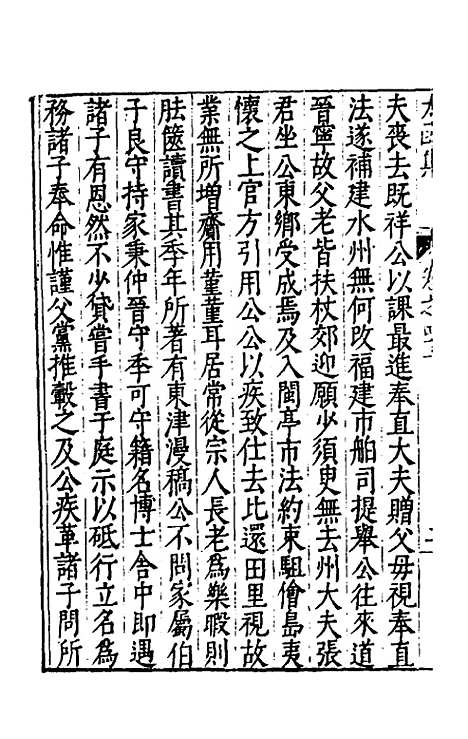 夫喪去既祥公以課最進奉直大夫贈父母視奉直
法遂補建水州無何改福建市舶司提舉公往來道
晉寧故父老皆扶杖郊迎願少須臾無去州大夫張
君坐公東鄉受成焉及入閩亭市法約束駔儈島夷
懷之上官方引用公公以疾致仕去比還田里視故
業無所增齎用蓳蓳耳居常從宗人長老為樂暇則
胠篋讀書其季年所著有東津漫稿公不問家屬伯
子良守持家秉仲晉守季可守籍名博士舍中即遇
諸子有恩然不少貸嘗手書子庭示以砥行立名為
務諸子奉命惟謹父黨推轂之及公疾革諸子問所